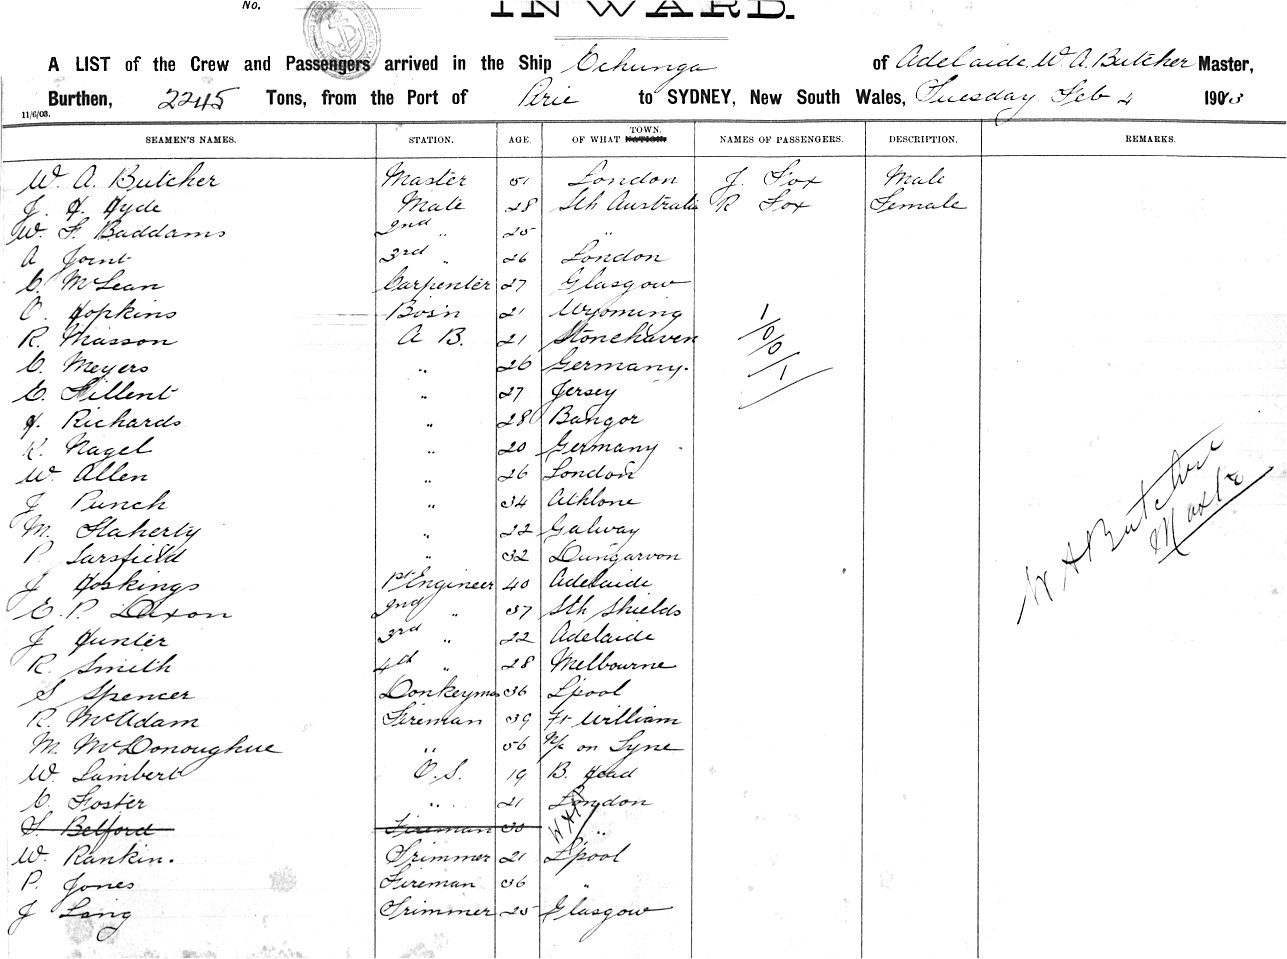 No.
INWARD.
A LIST of the Crew and Passengers arrived in the Ship Echunga of Adelaide, W. A. Butcher Master,
Burthen, 2245 Tons, from the Port of Pirie to SYDNEY, New South Wales, Tuesday Feb 4 1903
11/6/03.
SEAMEN'S NAMES. STATION. AGE. OF WHAT TOWN. NATION. NAMES OF PASSENGERS. DESCRIPTION. REMARKS.
W. A. Butcher Master 51 London J. Fox Male
J. H. Hyde Mate 28 Sth Australia R Fox Female
W. F. Baddams 2nd " 25 "
A Joint 3rd " 26 London
C. McLean Carpenter 27 Glasgow
O. Hopkins Bos'n 21 Wyoming
R. Masson A B. 21 Stonehaven
C. Meyers " 26 Germany.
C. Hillent " 27 Jersey
H. Richards " 28 Bangor
K. Nagel " 20 Germany
W. Allen " 26 London
J Punch " 34 Athlone
M. Flaherty " 22 Galway
P. Sarsfield " 32 Dungarvon
J Hoskings 1st Engineer 40 Adelaide
E. P. Dixon 2nd " 37 Sth Shields
J Hunter 3rd " 22 Adelaide
R. Smith 4th " 28 Melbourne
S Spencer Donkeyman 36 L'pool
R. McAdam Fireman 39 Ft William
M. McDonoughue " 56 N/c on Tyne
W. Lambert O.S. 19 B. Head
C. Foster " 21 London
T. Belford Fireman 30 "
W. Rankin. Trimmer 21 L'pool
P. Jones Fireman 36 "
J Laing Trimmer 25 Glasgow
1/0/0/1
W A Butcher
Master